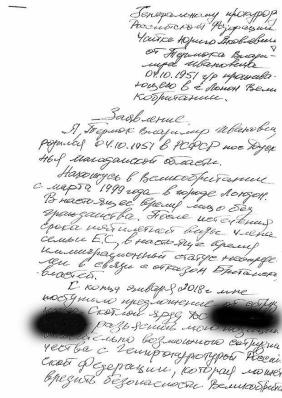 Генеральному прокурору
Российской Федерации
Чайке Юрию Яковлевичу
от Тюрмока Влади-
мира Ивановича
04.10.1951 г/р прожива-
ющего в г. Лондон Вели
кобритании.
Заявление.
Я Владимир Иванович
родился 04.10.1951 в РСФСР пос
Магаданской области.
Нахожусь в Великобритании
с марта 1999 года в городе Лондон.
В настоящее время лицо без
гражданства. После истечения
срока пятилетней визы члена
семьи Е.С, в настоящее время
иммиграционный статус неопреде-
лен в связи с отказом Британских
властей.
С конца января 2018 г мне
поступило предложение от сотру
Скотланд Ярд
разъяснил
возможного сотрудни
чества с Генпрокуратурой Россий
ской Федерации, которая может
вредить безопасности Великобритан